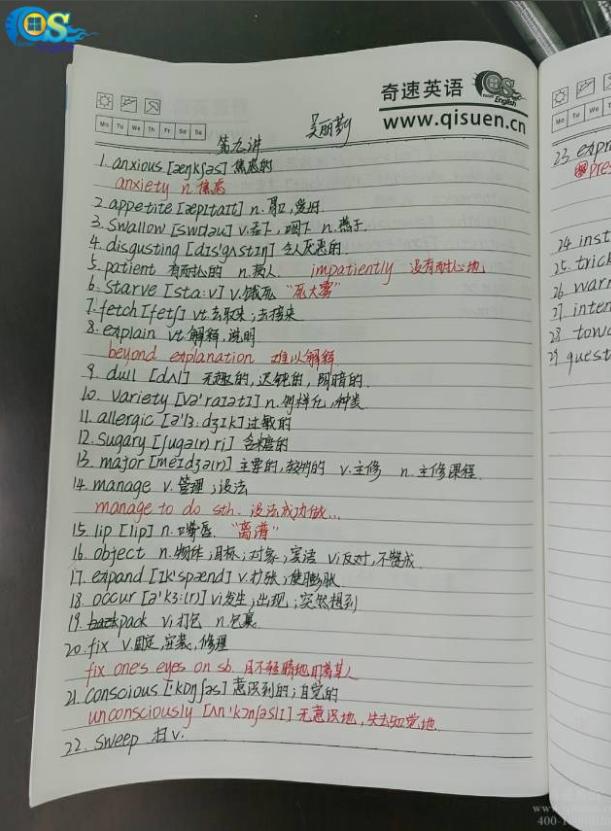 QS
奇速英语 QS English
www.qisuen.cn
Mo Tu We Th Fr Sa Su
第九讲
1. anxious [æŋkʃəs] 焦虑的
anxiety n. 焦虑
2. appetite [æpɪtaɪt] n. 胃口,爱好
3. swallow [swɒləʊ] v.吞下,咽下 n.燕子
4. disgusting [dɪs'gʌstɪŋ] 令人厌恶的
5. patient 有耐心的 n.病人 impatiently 没有耐心地
6. starve [sta:v] v.饿死 "死大雾"
7. fetch [fetʃ] vt.去取来;去接来
8. explain vt.解释,说明
beyond explanation 难以解释
9. dull [dʌl] 无趣的,迟钝的,阴暗的
10. variety [və'raɪətɪ] n.多样化,种类
11. allergic [ə'lɜ.dʒɪk] 过敏的
12. sugary [ʃʊgə(r) ri] 含糖的
13. major [meɪdʒə(r)] 主要的,较大的 v.主修 n.主修课程
14. manage v.管理;设法
manage to do sth. 设法成功做...
15. lip [lɪp] n.嘴唇 "离谱"
16. object n.物体;目标;对象;宾语 vi反对,不赞成
17. expand [ɪk'spænd] v.扩张;使膨胀
18. occur [ə'kɜ:(r)] vi发生;出现;突然想到
19. pack vi打包 n.包裹
20. fix v.固定,安装,修理
fix one's eyes on sb. 目不转睛地盯着某人
21. conscious ['kɒnʃəs] 意识到的;自觉的
unconsciously [ʌn'kɒnʃəslɪ] 无意识地,失去知觉地
22. sweep 扫 v.
Mo Tu We
23 expr
pres
24 inst
25. trick
26 warn
27 inter
28 towa
29 quest
www.
400-1